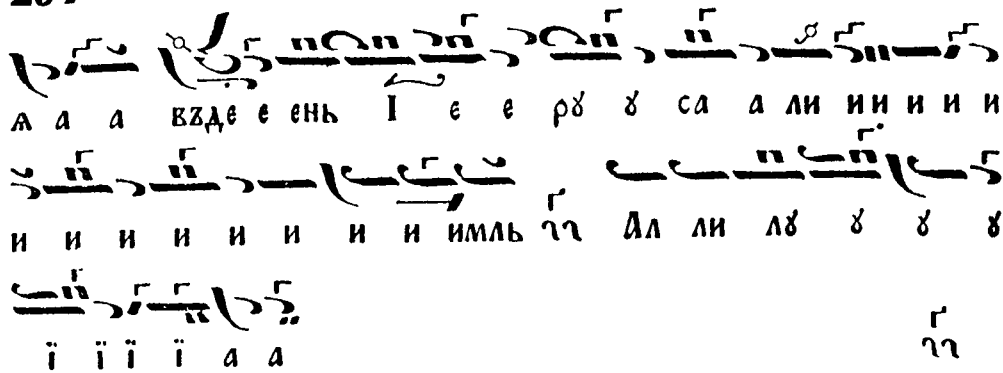 ѧ а а въде е ень І е е рꙋ ꙋ са а ли ии и и и
и и и и и и и и имль Ал ли лꙋ ꙋ ꙋ ꙋ
ї ї ї ї а а